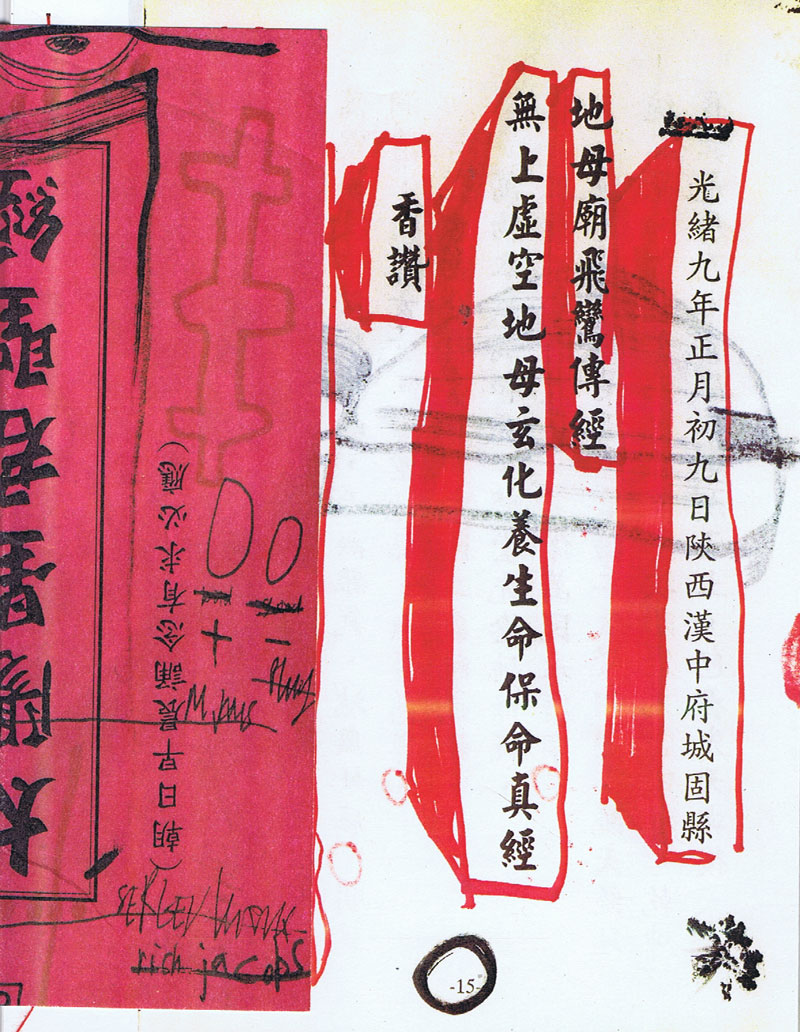 光緒九年正月初九日陝西漢中府城固縣
地母廟飛鸞傳經
無上虛空地母玄化養生命保命真經
香讚
-15-
(朝日早晨誦念有求必應)
太陽星君聖經